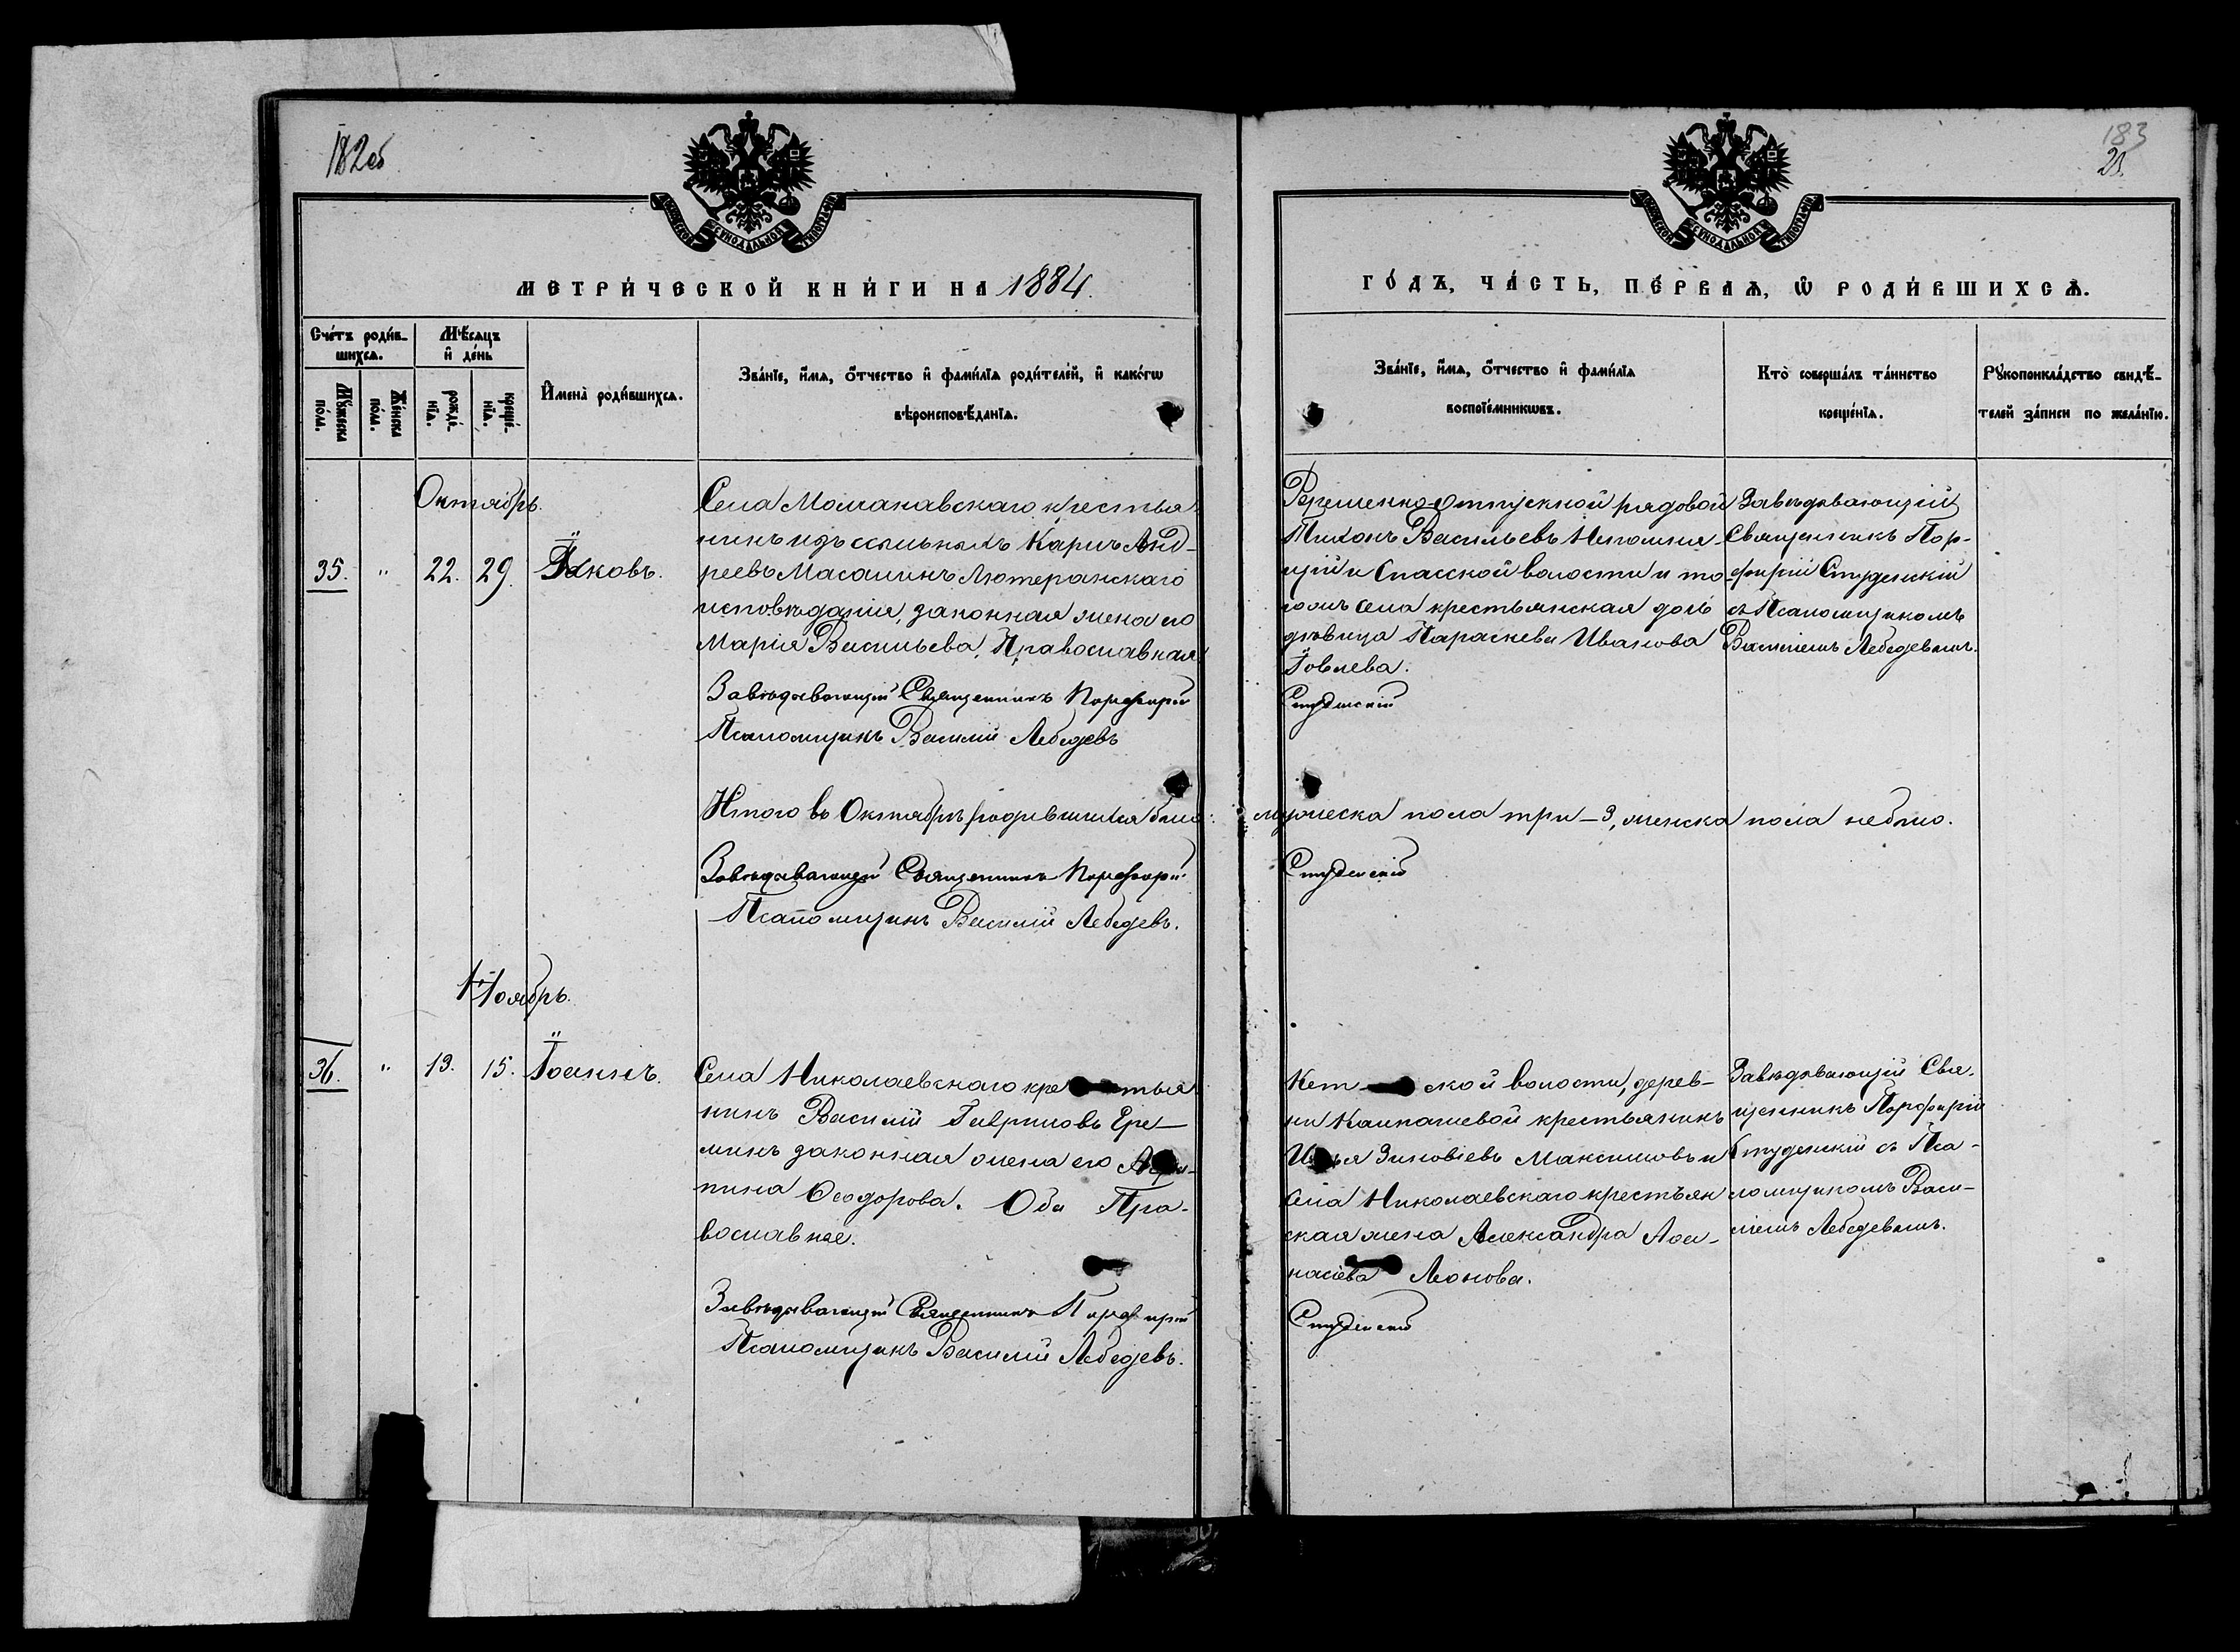 182об
183
21.
МЕТРИЧЕСКОЙ КНИГИ НА 1884.
ГОДЪ, ЧАСТЬ, ПЕРВАЯ, Ѡ РОДИВШИХСЯ.
Счетъ родив-
шихся.
Мѣсяцъ
и день
Мужеска
пола.
Женска
пола.
рожде-
нія.
креще-
нія.
Имена родившихся.
Званіе, имя, отчество и фамилія родителей, и какогѡ
вѣроисповѣданія.
Званіе, имя, отчество и фамилія
воспріемникѡвъ.
Кто совершалъ таинство
крещенія.
Рукоприкладство свидѣ-
телей записи по желанію.
Октябрь.
35. " 22. 29. Іаковъ.
Села крестья
нинъ изъ ссыльныхъ Карлъ Анд-
реевъ Масалинъ Лютеранскаго
исповѣданія, законная жена его
Марія Васильева, Православная.
Завѣдывающій Священникъ Порфирій
Псаломщикъ Василій Лебедевъ
Временно-отпускной рядовой
Тихонъ Васильевъ Непомня-
щій и Спасской волости и то
гожъ села крестьянская дочь
дѣвица Параскева Иванова
Іовлева.
Студенскій
Завѣдывающій
Священникъ Пор-
фирій Студенскій
съ Псаломщикомъ
Василіемъ Лебедевымъ.
Итого въ Октябрѣ родившихся было: мужеска пола три-3, женска пола небыло.
Завѣдывающій Священникъ Порфирій
Студенскій
Псаломщикъ Василій Лебедевъ.
Ноябрь.
36. " 13. 15. Іоаннъ.
Села Николаевскаго крестья
нинъ Василій Гавриловъ Ере-
минъ законная жена его Агри-
пина Ѳеодорова. Оба Пра-
вославные.
Завѣдывающій Священникъ Порфирій
Псаломщикъ Василій Лебедевъ.
Кетской волости, дерев-
ни Колпашевой крестьянинъ
Илья Зиновіевъ Максимовъ и
села Николаевскаго крестьян
ская жена Александра Аѳа-
насіева Леонова.
Студенскій
Завѣдывающій Свя-
щенникъ Порфирій
Студенскій съ Пса-
ломщикомъ Васи-
ліемъ Лебедевымъ.